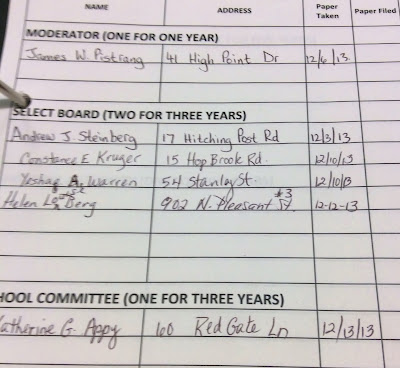 NAME ADDRESS Paper Taken Paper Filed
MODERATOR (ONE FOR ONE YEAR)
James W. Pistrang 41 High Point Dr 12/6/13
SELECT BOARD (TWO FOR THREE YEARS)
Andrew J. Steinberg 17 Hitching Post Rd 12/3/13
Constance E Kruger 15 Hop Brook Rd. 12/10/13
A. Warren 54 Stanley St. 12/10/13
Helen Berg 902 N. Pleasant St. #3 12-12-13
HOOL COMMITTEE (ONE FOR THREE YEARS)
atherine G. Appy 160 Red Gate Ln 12/13/13